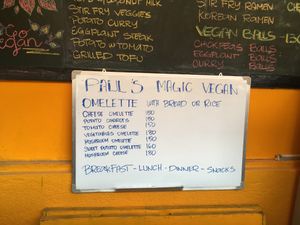 STIR FRY VEGGIES
POTATO CURRY
EGGPLANT STEAK
POTATO W/TOMATO
GRILLED TOFU
STIR FRY RAMEN
KOREAN RAMEN
VEGAN BALLS
CHICKPEAS BALLS
EGGPLANT BALLS
CURRY BALLS
PAUL'S MAGIC VEGAN
OMELETTE WITH BREAD OR RICE
CHEESE OMELETTE
POTATO
TOMATO CHEESE 150
VEGETABLES OMELETTE 180
MUSHROOM OMELETTE 150
SWEET POTATO OMELETTE 160
MUSHROOM CHEESE 180
BREAKFAST - LUNCH - DINNER - SNACKS